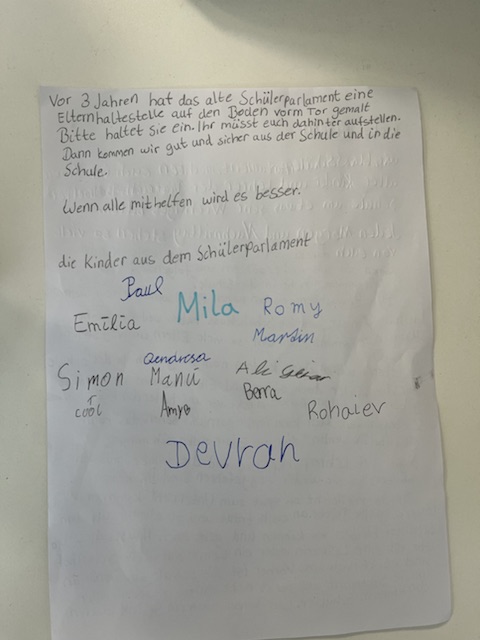 Vor 3 Jahren hat das alte Schülerparlament eine
Elternhaltestelle auf den Boden vorm Tor gemalt
Bitte haltet sie ein. Ihr müsst euch dahinter aufstellen.
Dann kommen wir gut und sicher aus der Schule und in die
Schule.
Wenn alle mithelfen wird es besser.
die Kinder aus dem Schülerparlament
Paul
Emilia Mila Romy
Martin
Simon Manú Ali
cool Amro Berra
Rohaiev
Devrah